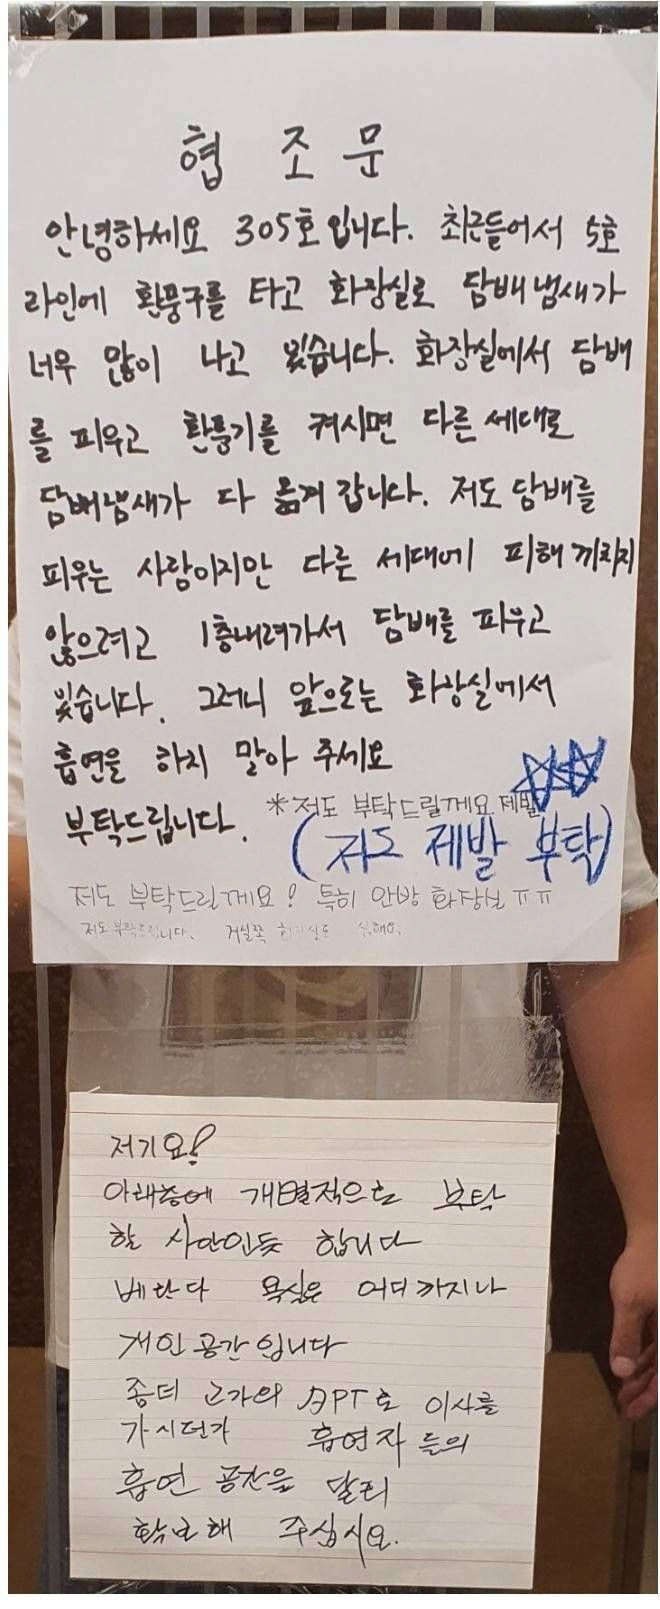 협 조 문
안녕하세요 305호입니다. 최근들어서 5호
라인에 환풍구를 타고 화장실로 담배냄새가
너무 많이 나고 있습니다. 화장실에서 담배
를 피우고 환풍기를 켜시면 다른 세대로
담배냄새가 다 옮겨갑니다. 저도 담배를
피우는 사람이지만 다른 세대에 피해 끼치지
않으려고 1층내려가서 담배를 피우고
있습니다. 그러니 앞으로는 화장실에서
흡연을 하지 말아 주세요
부탁드립니다. *저도 부탁드릴께요 제발
(저도 제발 부탁)
저도 부탁드릴께요! 특히 안방 화장실 ㅠㅠ
저도부탁드립니다. 거실쪽 화장실도 심해요.
저기요!
아래층에 개별적으로 부탁
할 사안인듯 합니다
베란다 욕실은 어디까지나
개인공간입니다
좀더 고가의 APT로 이사를
가시던가 흡연자들의
흡연 공간을 달리
확보해 주십시요.